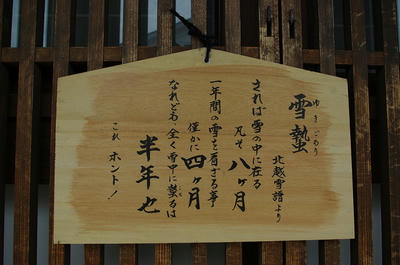 雪蟄
ゆきごもり
北越雪譜より
されば雪の中に在る
凡そ八ヶ月
一年間の雪を看ざる事
僅かに四ヶ月
なれども、全く雪中に蟄るは
半年也
これ ホント!